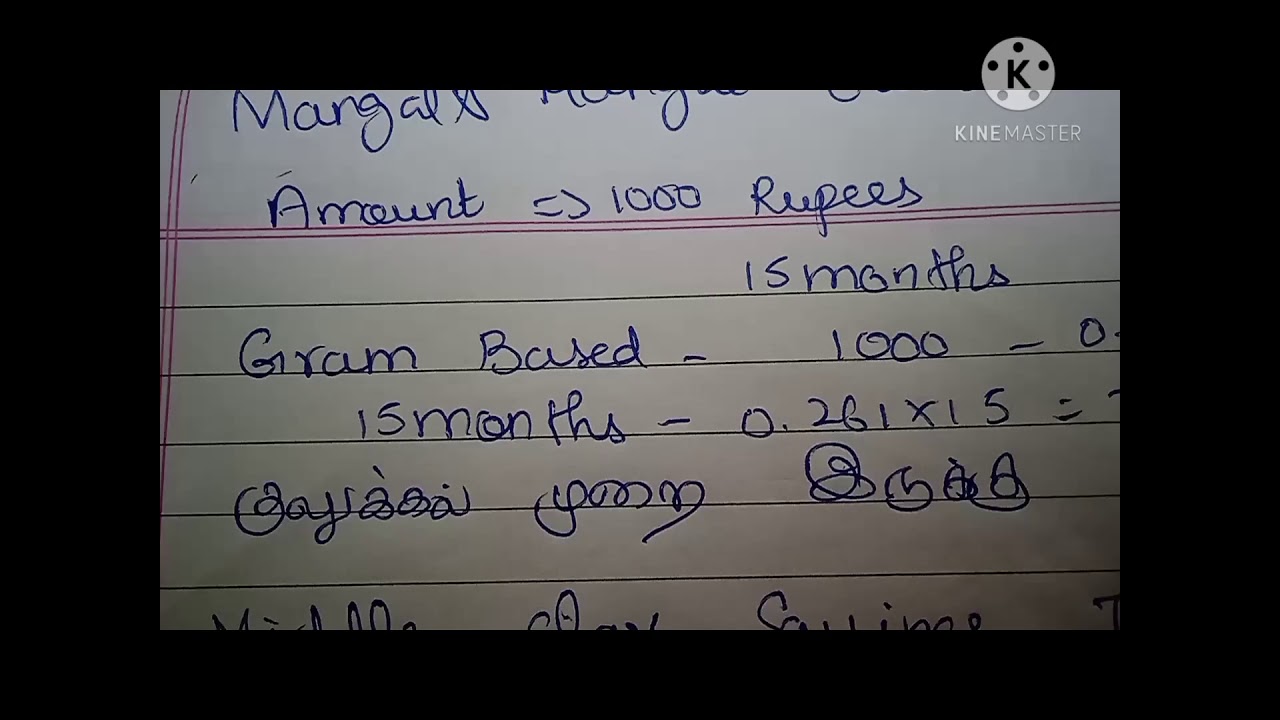 KINEMASTER
Mangal &
Amount => 1000 Rupees
15 months
Gram Based - 1000 - 0.
15 months - 0.261 x 15 =
குலுக்கல் முறை இருக்கு